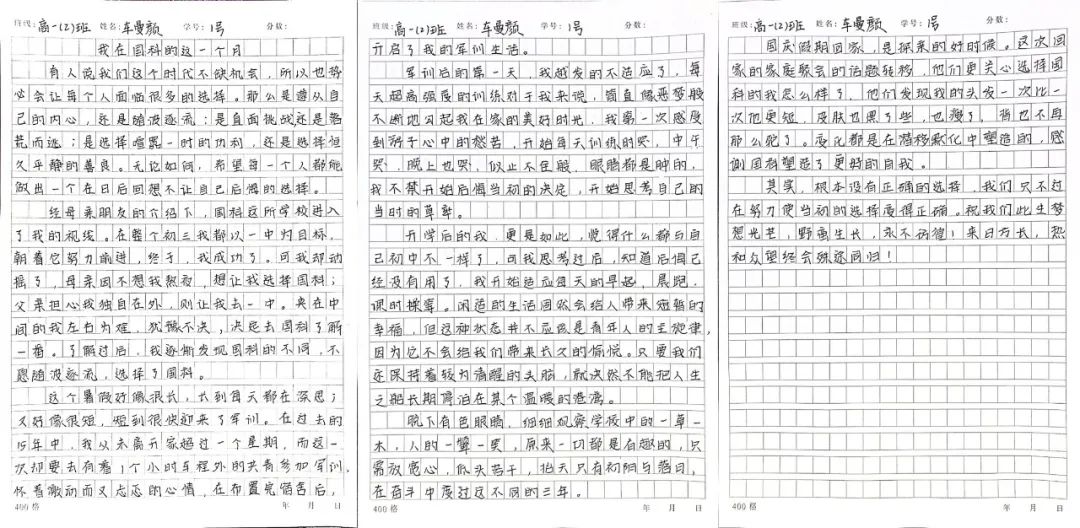 班级:高一(2)班 姓名:车曼颜 学号:1号 分数:
我在国科的这一个月
有人说我们这个时代不缺机会，所以也势
必会让每个人面临很多的选择。那么是遵从自
己的内心，还是随波逐流；是直面挑战还是落
荒而逃；是选择喧嚣一时的功利，还是选择恒
久平静的善良。无论如何，希望每一个人都能
做出一个在日后回想不让自己后悔的选择。
经母亲朋友的介绍下，国科这所学校进入
了我的视线。在整个初三我都以一中为目标，
朝着它努力前进，终于，我成功了。可我却动
摇了，母亲因不想我熬夜，想让我选择国科；
父亲担心我独自在外，则让我去一中。夹在中
间的我左右为难，犹豫不决，决定去国科了解
一番。了解过后，我逐渐发现国科的不同，不
愿随波逐流，选择了国科。
这个暑假好像很长，长到每天都在深思；
又好像很短，短到很快迎来了军训。在过去的
15年中，我从未离开家超过一个星期，而这一
次却要去有着1个小时车程外的共青参加军训，
怀着激动而又忐忑的心情，在布置完宿舍后，
400格 年 月 日
班级:高一(2)班 姓名:车曼颜 学号:1号 分数:
开启了我的军训生活。
军训后的第一天，我越发的不适应了，每
天超高强度的训练对于我来说，简直像恶梦般
不断地勾起我在家的美好时光，我第一次感受
到游子心中的愁苦，开始每天训练的哭，中午
哭，晚上也哭，似止不住般，眼睛都是肿的，
我不禁开始后悔当初的决定，开始思考自己的
当时的草率。
开学后的我，更是如此，觉得什么都与自
己初中不一样了，可我思考过后，知道后悔已
经没有用了，我开始适应每天的早起，晨跑，
课时操等。闲适的生活固然会给人带来短暂的
幸福，但这种状态并不应该是青年人的主旋律，
因为它不会给我们带来长久的愉悦。只要我们
还保持着较为清醒的头脑，就决然不能把人生
之船长期停泊在某个温暖的港湾。
脱下有色眼睛，细细观察学校中的一草一
木，人的一颦一笑，原来一切都是有趣的，只
需放宽心，低头苦干，抬天只有初阳与落日，
在奋斗中度过这不同的三年。
400格 年 月 日
班级:高一(2)班 姓名:车曼颜 学号:1号 分数:
国庆假期回家，是探亲的好时候。这次回
家的家庭聚会的话题转移，他们更关心选择国
科的我怎么样了，他们发现我的头发一次比一
次他更短，皮肤也黑了些，也瘦了，背也不再
那么驼了。变化都是在潜移默化中塑造的，感
谢国科塑造了更好的自我。
其实，根本没有正确的选择，我们只不过
在努力使当初的选择变得正确。祝我们此生梦
想光芒，野蛮生长，永不彷徨！来日方长，热
和众望终会殊途同归！
400格 年 月 日